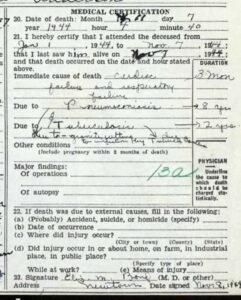 MEDICAL CERTIFICATION
20. Date of death: Month 11 day 7
year 1944 hour minute 40
21. I hereby certify that I attended the deceased from
Jan 1 1944, to Nov. 7 1944;
that I last saw him alive on Nov 7 1944
and that death occurred on the date and hour stated above.
DURATION
Immediate cause of death Cardiac 3 Mon
failure and respiratory
failure
Due to Pneumoconiosis 8 yrs
Due to Tuberculosis 2 yrs
due to
Other conditions
(Include pregnancy within 3 months of death)
Major findings:
Of operations 13a
Of autopsy
PHYSICIAN
Underline
the cause to
which death
should be
charged
statistically.
22. If death was due to external causes, fill in the following:
(a) (Probably) Accident, suicide, or homicide (specify)
(b) Date of occurrence
(c) Where did injury occur?
(City or town) (County) (State)
(d) Did injury occur in or about home, on farm, in industrial
place, in public place?
(Specify type of place)
While at work? (e) Means of injury
23. Signature M. (M. D. or other)
Address Newtown Date signed Nov. 8, 1944